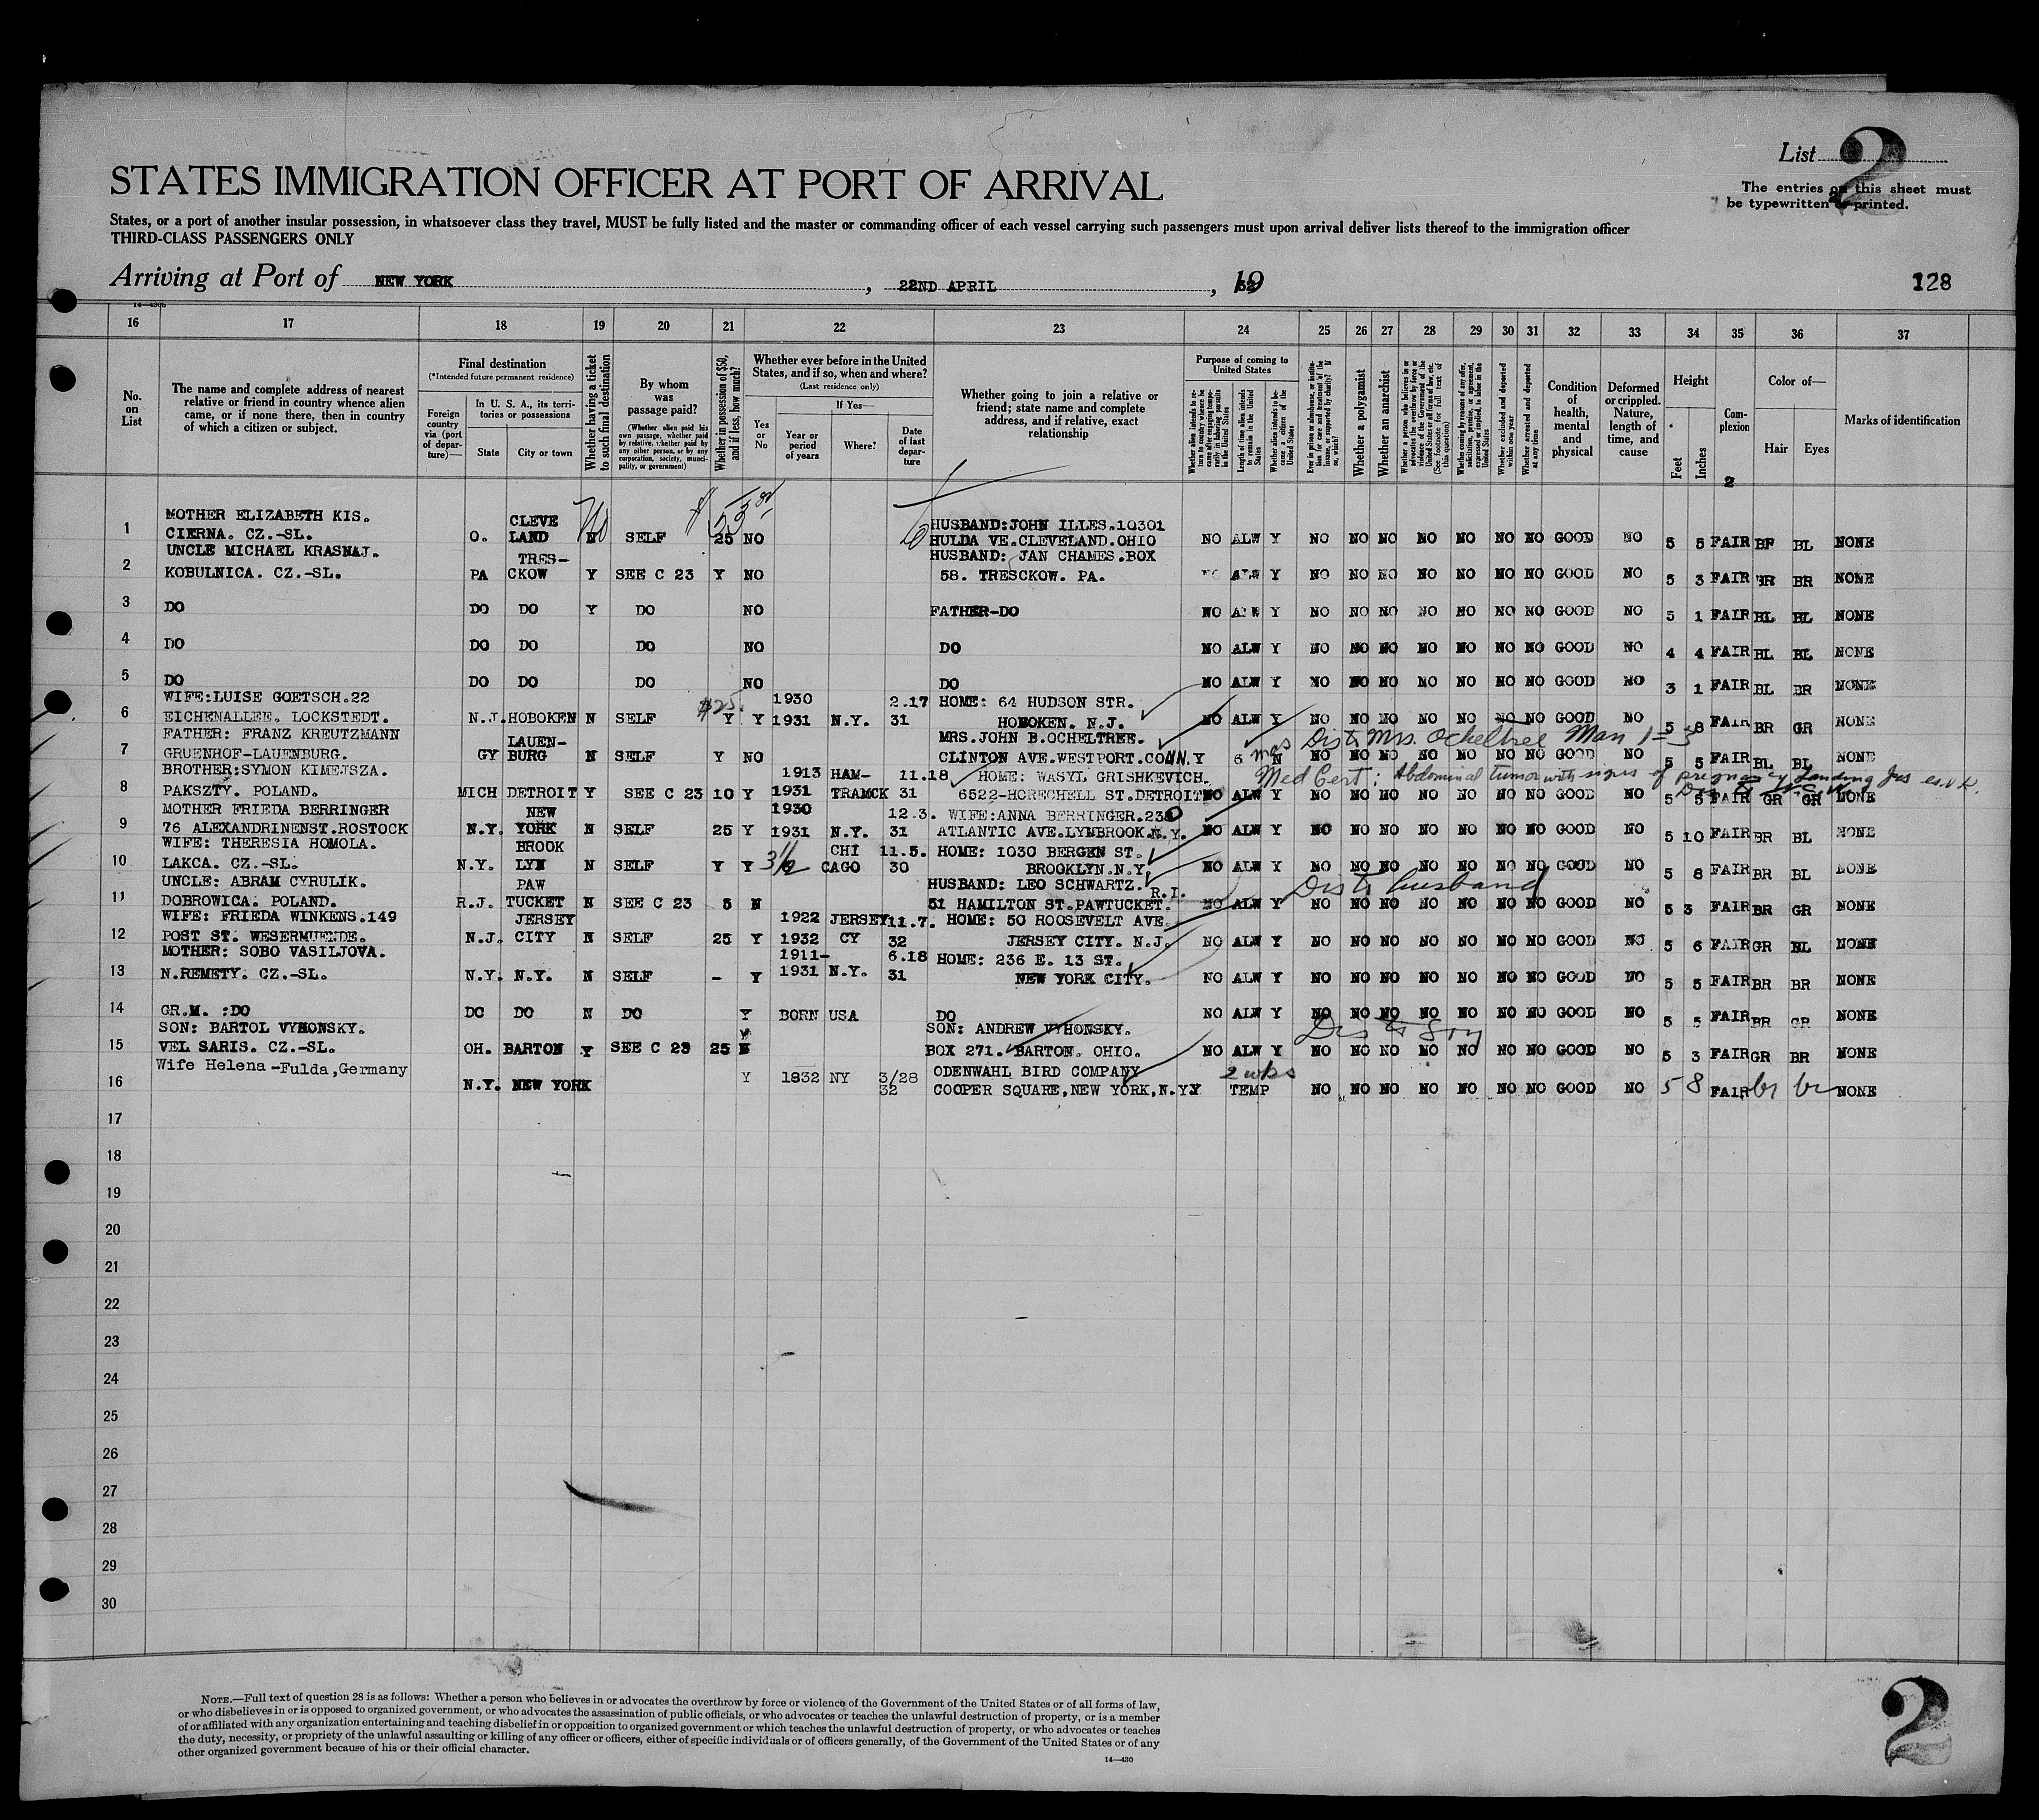 List 2
The entries on this sheet must
be typewritten or printed.
STATES IMMIGRATION OFFICER AT PORT OF ARRIVAL
States, or a port of another insular possession, in whatsoever class they travel, MUST be fully listed and the master or commanding officer of each vessel carrying such passengers must upon arrival deliver lists thereof to the immigration officer
THIRD-CLASS PASSENGERS ONLY
Arriving at Port of NEW YORK, 22ND APRIL, 19 32
128
14—430b
16 17 18 19 20 21 22 23 24 25 26 27 28 29 30 31 32 33 34 35 36 37
No. on List
The name and complete address of nearest relative or friend in country whence alien came, or if none there, then in country of which a citizen or subject.
Final destination
(*Intended future permanent residence)
Foreign country via (port of departure)—
In U. S. A., its territories or possessions
State
City or town
Whether having a ticket to such final destination
By whom was passage paid?
(Whether alien paid his own passage, whether paid by relative, whether paid by any other person, or by any corporation, society, municipality, or government)
Whether in possession of $50, and if less, how much?
Whether ever before in the United States, and if so, when and where?
(Last residence only)
Yes or No
If Yes—
Year or period of years
Where?
Date of last departure
Whether going to join a relative or friend; state name and complete address, and if relative, exact relationship
Purpose of coming to United States
Whether alien intends to return to country whence he came after engaging temporarily in laboring pursuits in the United States
Length of time alien intends to remain in the United States
Whether alien intends to become a citizen of the United States
Ever in prison or almshouse, or institution for care and treatment of the insane, or supported by charity? If so, which?
Whether a polygamist
Whether an anarchist
Whether a person who believes in or advocates the overthrow by force or violence of the Government of the United States or all forms of law, etc. (See footnote for full text of this question)
Whether coming by reasons of any offer, solicitation, promise, or agreement, expressed or implied, to labor in the United States
Whether excluded and deported within one year
Whether arrested and deported at any time
Condition of health, mental and physical
Deformed or crippled. Nature, length of time, and cause
Height
Feet
Inches
Complexion
2
Color of—
Hair
Eyes
Marks of identification
1 MOTHER ELIZABETH KIS. CIERNA. CZ.-SL. O. CLEVE LAND N No SELF 25 $ 53 NO HUSBAND:JOHN ILLES.10301 HULDA VE.CLEVELAND.OHIO NO ALW Y NO NO NO NO NO NO NO GOOD NO 5 5 FAIR BL NONE
2 UNCLE MICHAEL KRASNAJ. KOBULNICA. CZ.-SL. PA TRES- CKOW Y SEE C 23 Y NO HUSBAND: JAN CHAMES.BOX 58. TRESCKOW. PA. NO ALW Y NO NO NO NO NO NO NO GOOD NO 5 3 FAIR BR NONE
3 DO DO DO Y DO NO FATHER-DO NO ALW Y NO NO NO NO NO NO NO GOOD NO 5 1 FAIR BL BL NONE
4 DO DO DO DO NO DO NO ALW Y NO NO NO NO NO NO NO GOOD NO 4 4 FAIR BL BL NONE
5 DO DO DO DO NO DO NO ALW Y NO NO NO NO NO NO NO GOOD NO 3 1 FAIR BL BR NONE
6 WIFE:LUISE GOETSCH.22 EICHENALLEE. LOCKSTEDT. N.J. HOBOKEN N SELF $25. Y Y 1930 1931 N.Y. 2.17 31 HOME: 64 HUDSON STR. HOBOKEN. N.J. NO ALW Y NO NO NO NO NO NO NO GOOD NO 5 8 FAIR BR GR NONE
7 FATHER: FRANZ KREUTZMANN GRUENHOF-LAUENBURG. GY LAUEN- BURG N SELF Y NO MRS.JOHN B.OCHELTREE. CLINTON AVE.WESTPORT.CONN. Y 6 mos N Dis to Mrs. Ocheltree NO NO NO NO NO NO NO GOOD NO 5 5 FAIR BL BL NONE
8 BROTHER:SYMON KIMEJSZA. PAKSZTY. POLAND. MICH DETROIT Y SEE C 23 10 Y 1913 1931 HAM- TRAMCK 11.18 31 HOME: WASYL GRISHKEVICH. 6522-HORECHELL ST.DETROIT NO ALW Y Med Cert: Abdominal tumor with signs of pregnancy Landing NO NO NO NO NO NO NO GOOD NO 5 5 FAIR GR GR NONE
9 MOTHER FRIEDA BERRINGER 76 ALEXANDRINENST.ROSTOCK N.Y. NEW YORK N SELF 25 Y 1930 1931 N.Y. 12.3. 31 WIFE:ANNA BERRINGER.230 ATLANTIC AVE.LYNBROOK.N.Y. NO ALW Y NO NO NO NO NO NO NO GOOD NO 5 10 FAIR BR BL NONE
10 WIFE: THERESIA HOMOLA. LAKCA. CZ.-SL. N.Y. BROOK LYN N SELF Y Y 3 1/2 CHI CAGO 11.5. 30 HOME: 1030 BERGEN ST. BROOKLYN.N.Y. NO ALW Y NO NO NO NO NO NO NO GOOD NO 5 8 FAIR BR BL NONE
11 UNCLE: ABRAM CYRULIK. DOBROWICA. POLAND. R.J. PAW TUCKET N SEE C 23 5 N HUSBAND: LEO SCHWARTZ. 51 HAMILTON ST.PAWTUCKET. R.I. NO ALW Y Dis to husband NO NO NO NO NO NO NO GOOD NO 5 3 FAIR BR GR NONE
12 WIFE: FRIEDA WINKENS.149 POST ST. WESERMUENDE. N.J. JERSEY CITY N SELF 25 Y 1922 1932 JERSEY CY 11.7. 32 HOME: 50 ROOSEVELT AVE. JERSEY CITY. N.J. NO ALW Y NO NO NO NO NO NO NO GOOD NO 5 6 FAIR GR BL NONE
13 MOTHER: SOBO VASILJOVA. N.REMETY. CZ.-SL. N.Y. N.Y. N SELF - Y 1911- 1931 N.Y. 6.18 31 HOME: 236 E. 13 ST. NEW YORK CITY. NO ALW Y NO NO NO NO NO NO NO GOOD NO 5 5 FAIR BR BR NONE
14 GR.M. :DO DO DO N DO Y BORN USA DO NO ALW Y NO NO NO NO NO NO NO GOOD NO 5 5 FAIR BR GR NONE
15 SON: BARTOL VYHONSKY. VEL SARIS. CZ.-SL. OH. BARTON Y SEE C 23 25 N SON: ANDREW VYHONSKY. BOX 271. BARTON. OHIO. NO ALW Y Dis to Son NO NO NO NO NO NO NO GOOD NO 5 3 FAIR GR BR NONE
16 Wife Helena-Fulda, Germany N.Y. NEW YORK Y 1832 NY 3/28 32 ODENWAHL BIRD COMPANY COOPER SQUARE,NEW YORK,N.Y. Y 2 wks TEMP NO NO NO NO NO NO NO GOOD NO 5 8 FAIR br br NONE
17
18
19
20
21
22
23
24
25
26
27
28
29
30
NOTE.—Full text of question 28 is as follows: Whether a person who believes in or advocates the overthrow by force or violence of the Government of the United States or of all forms of law,
or who disbelieves in or is opposed to organized government, or who advocates the assassination of public officials, or who advocates or teaches the unlawful destruction of property, or is a member
of or affiliated with any organization entertaining and teaching disbelief in or opposition to organized government or which teaches the unlawful destruction of property, or who advocates or teaches
the duty, necessity, or propriety of the unlawful assaulting or killing of any officer or officers, either of specific individuals or of officers generally, of the Government of the United States or of any
other organized government because of his or their official character.
14—430
2